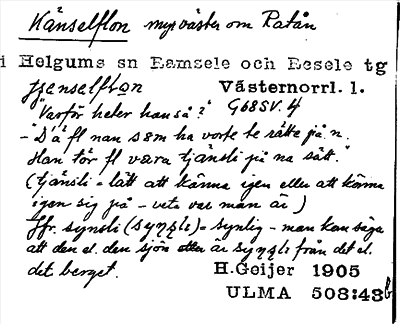 Känselflon myr väster om Ratån
i Helgums sn Ramsele och Resele tg
Västernorrl. l.
"Varför heter han så?" G68SV.4
-"D'ä fl nan som ha vorte te rätte på'n.
Han tör fl vara tjänsli på na sätt."
(tjänsli = lätt att känna igen eller att känna
igen sig på - veta var man är)
Jfr. synsli = synlig - man kan säga
att den el. den sjön är från det el.
det berget.
H.Geijer 1905
ULMA 508:43b